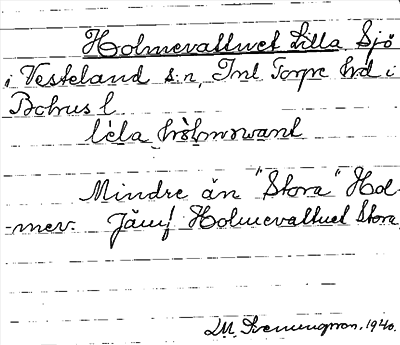 Holmevattnet Lilla Sjö
i Vesteland s:n, Inl Torpe hd i
Bohus l
lela
Mindre än "Stora" Hol-
mev. Jämf Holmevattnet Stora
1940.